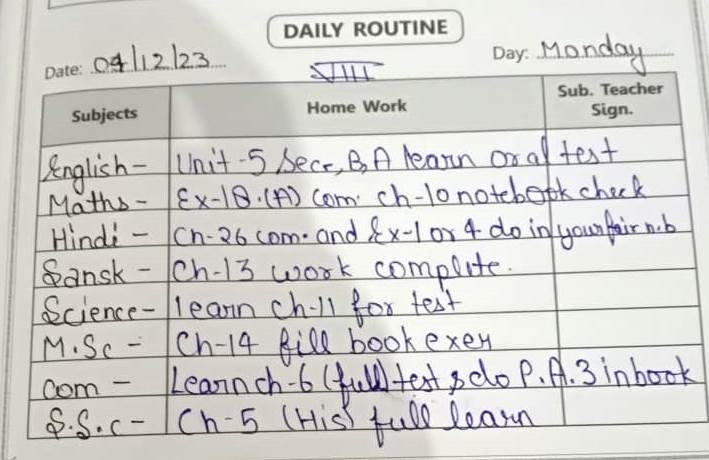 DAILY ROUTINE
Date: 04/12/23 Day: Monday
VIII
Subjects Home Work Sub. Teacher Sign.
English - Unit-5 Secr, B, A learn oral test
Maths - Ex-18.(A) com. ch-10 notebook check
Hindi - Ch-26 com. and Ex-1 or 4 do in your fair n.b
Sansk - Ch-13 work complite.
Science - learn ch-11 for test
M.Sc - Ch-14 fill book exer
Com - Learn ch-6 (full) test & do P.A.3 in book
S.S.c - Ch-5 (His) full learn